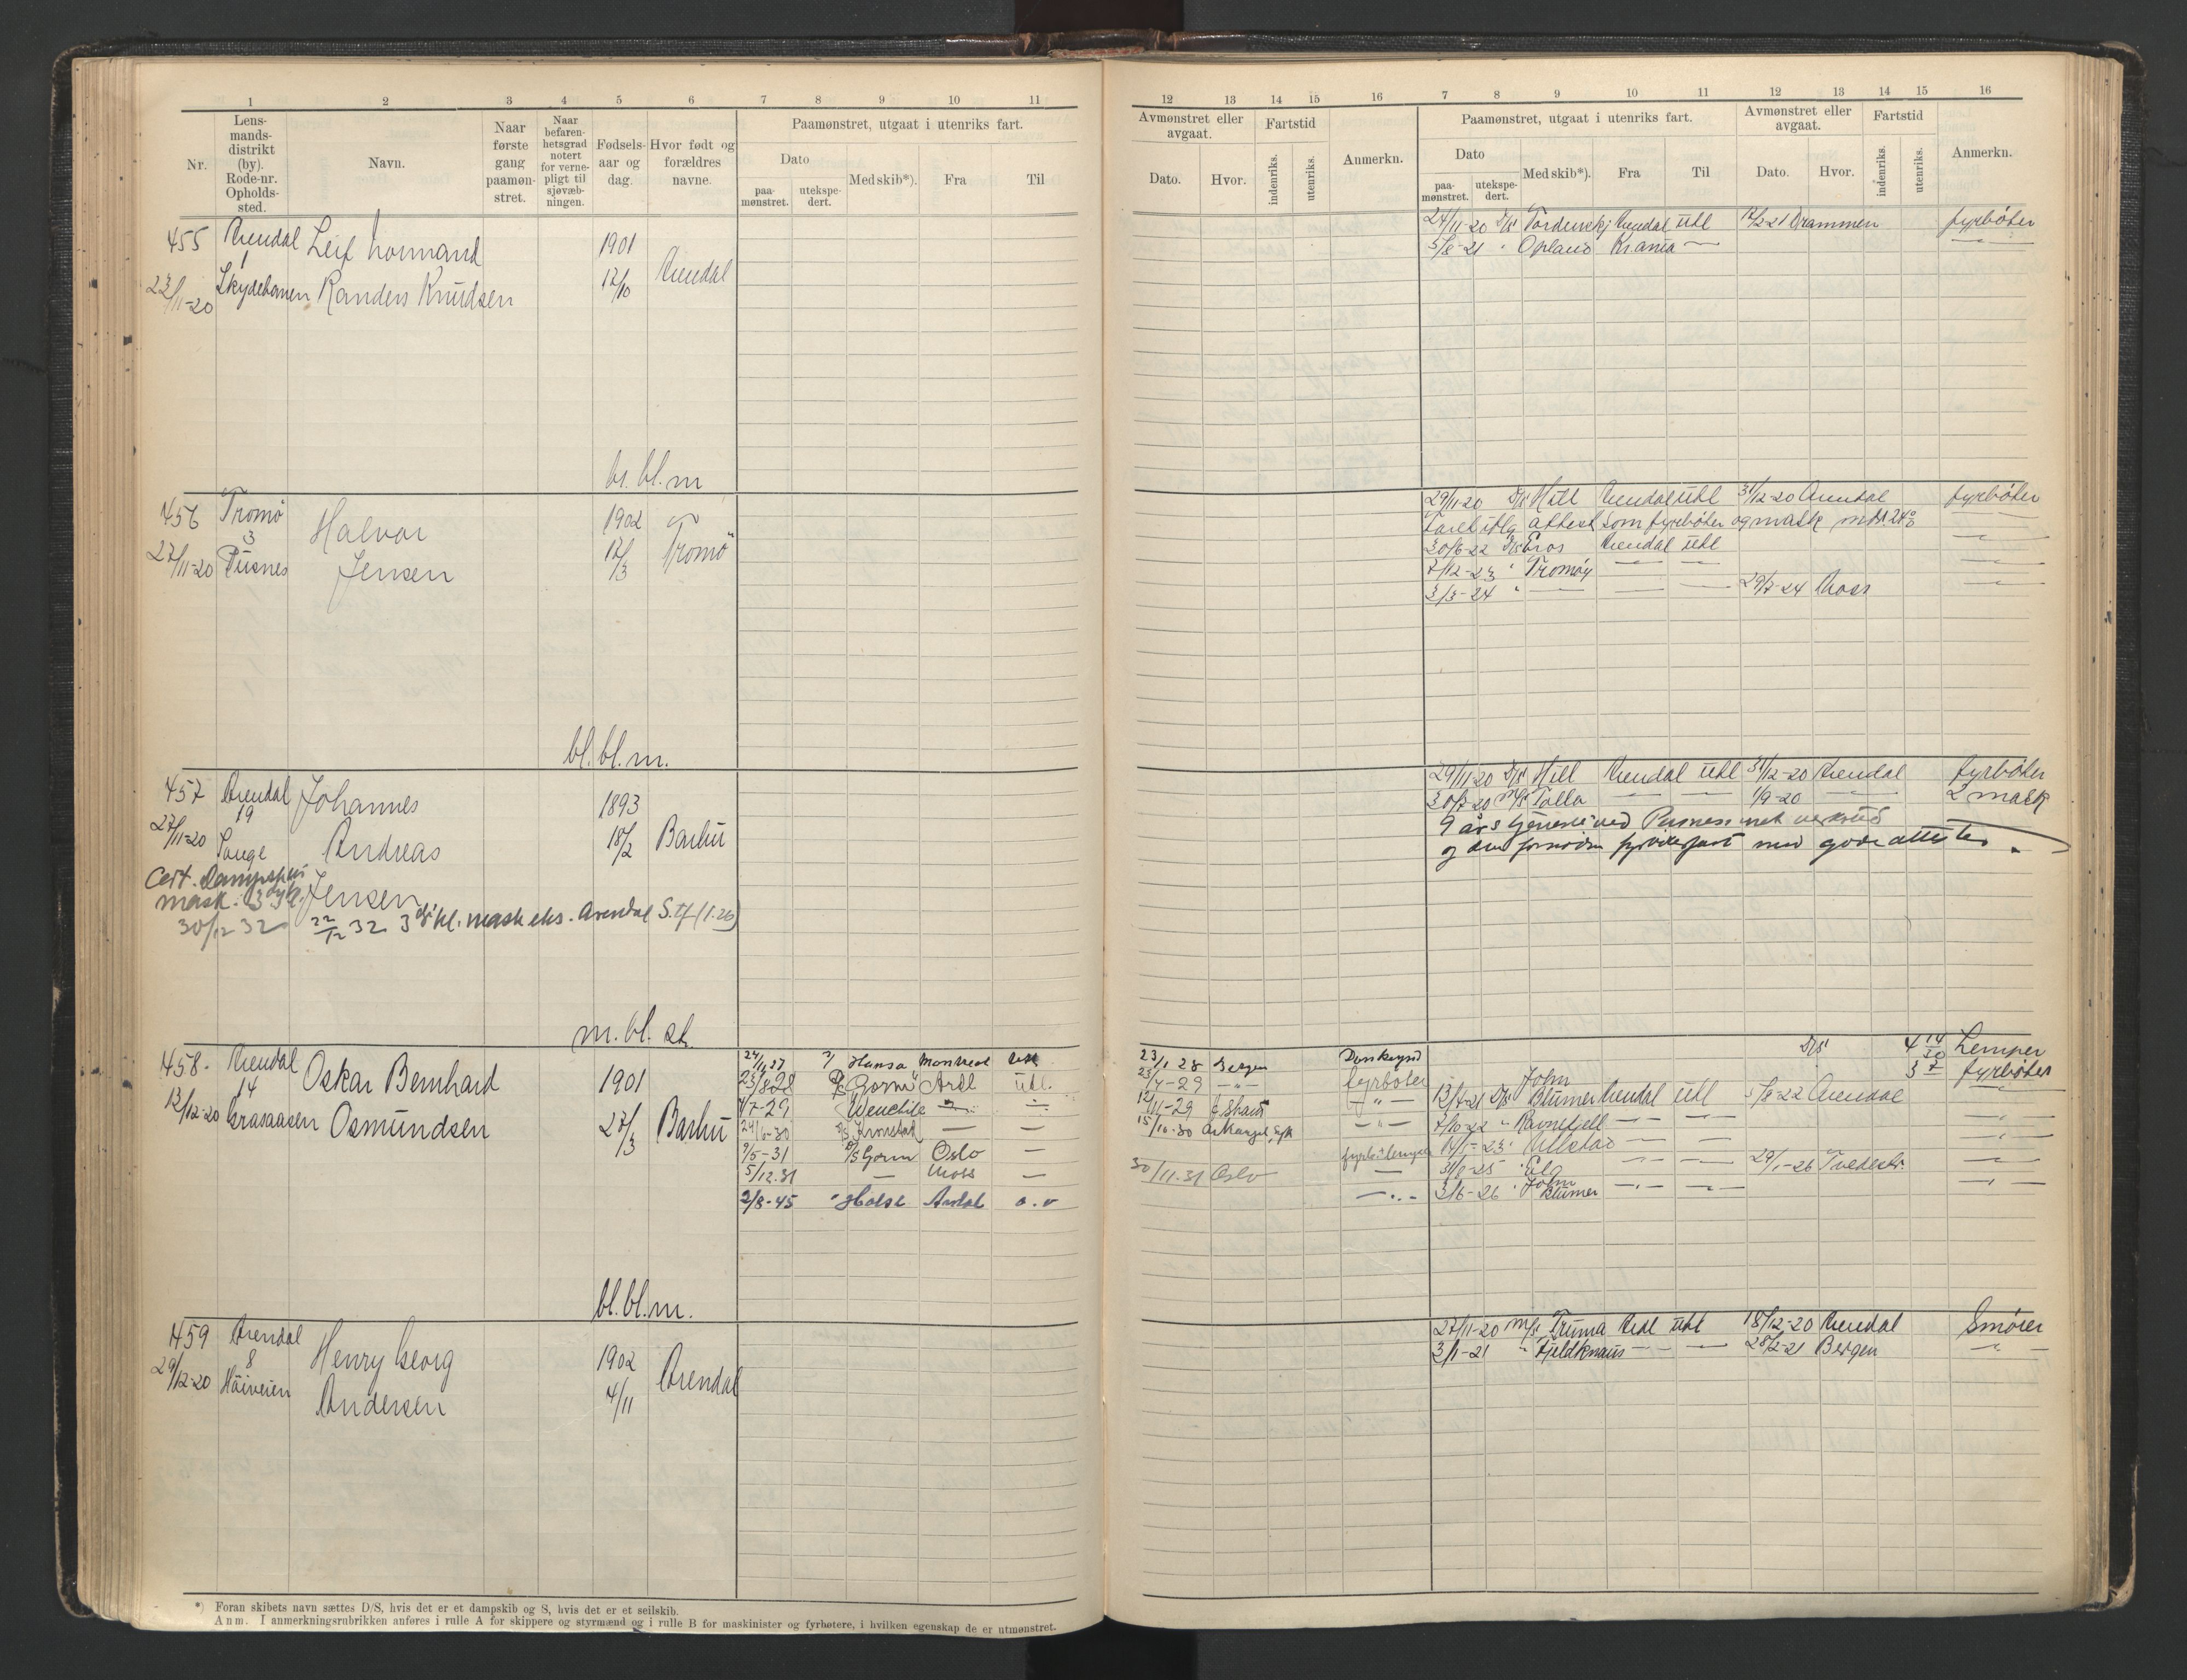 1 2 3 4 5 6 7 8 9 10 11
Nr.
Lens-
mands-
distrikt
(by).
Rode-nr.
Opholds-
sted.
Navn.
Naar
første
gang
paamøn-
stret.
Naar
befaren-
hetsgrad
notert
for verne-
pligt til
sjøvæb-
ningen.
Fødsels-
aar og
dag.
Hvor født og
forældres
navne.
Paamønstret, utgaat i utenriks fart.
Dato
paa-
mønstret.
utekspe-
dert.
Med skib*).
Fra
Til
455 Arendal Leif Normand 1901
1
23/11-20 Skydebanen Randers Knudsen 12/10 Arendal
br. bl. m
456 Tromø Halvor 1902
3
27/11-20 Pusnes Jensen 12/3 Tromö
bl. bl. m.
457 Arendal Johannes 1893
19
27/11-20 Songe Andreas 18/2 Barbu
Cert. Dampskibs
mask. Jensen
30/12 32 22/12 32 3dj kl. mask eks. Arendal
m. bl. st.
458. Arendal Oskar Bernhard 1901
14
13/12-20 Græsaasen Osmundsen 27/3 Barbu
24/11 27 Hansa Montreal utl
23/8-28 D/S Gorm Ardl utl.
4/7-29 Wenchile
24/6-30 Kronstad — —
9/5-31 D/S Gorm Oslo —
5/12.31 — Moss —
2/8-45 " Hoese Ardal o.v
bl. bl. m.
459 Arendal Henry Georg 1902
8
29/12-20 Höiveien Andersen 4/11 Arendal
*) Foran skibets navn sættes D/S, hvis det er et dampskib og S, hvis det er et seilskib.
Anm. I anmerkningsrubrikken anføres i rulle A for skippere og styrmænd og i rulle B for maskinister og fyrbøtere, i hvilken egenskap de er utmønstret.
12 13 14 15 16 7 8 9 10 11 12 13 14 15 16
Avmønstret eller
avgaat.
Dato.
Hvor.
Fartstid
indenriks.
utenriks.
Anmerkn.
Paamønstret, utgaat i utenriks fart.
Dato
paa-
mønstret.
utekspe-
dert.
Med skib*).
Fra
Til
Avmønstret eller
avgaat.
Dato.
Hvor.
Fartstid
indenriks.
utenriks.
Anmerkn.
24/11-20 D/S Tordenskj Arendal utl 12/2-21 Drammen fyrbøter
5/8-21 " Opland Krania — — " —
29/11-20 D/S Hill Arendal utl 31/12-20 Arendal fyrbøter
attest som fyrbøter og mask
30/6-22 D/S Eros Arendal utl — " —
7/12-23 " Tromøy — " — — " — — " —
3/3-24 " — — — 29/7-24 Moss — " —
29/11-20 D/S Hill Arendal utl 31/12-20 Arendal fyrbøter
30/7-20 M/S Talla — " — — 1/9-20 — " — 2 mask
9 aars tjeneste ved Pusnes mek verksted
og den fornødne fyrbøterfart med gode attester.
23/1 28 Bergen Donkeymd
23/4-29 — " — fyrbøter
12/11-29 — " —
15/10-30 Arkangel — " —
30/11-31 Oslo —
— " —
D/S 4 14/20 Lemper
3 7 fyrbøter
13/4-21 D/S John Blumer Arendal utl 5/8-22 Arendal — " —
7/10-22 " Ravnefjell — " — — " — — " —
14/5-23 " Ullstad — " — — " — — " —
31/8-25 " Elg — " — — " — 29/1-26 Tvedestr. — " —
3/6-26 " John Blumer — " — — " — — " —
27/11-20 M/S Truma Ardl utl 18/12-20 Arendal Smører
3/1-21 " Fjeldknaus — " — — " — 28/2-21 Bergen — " —